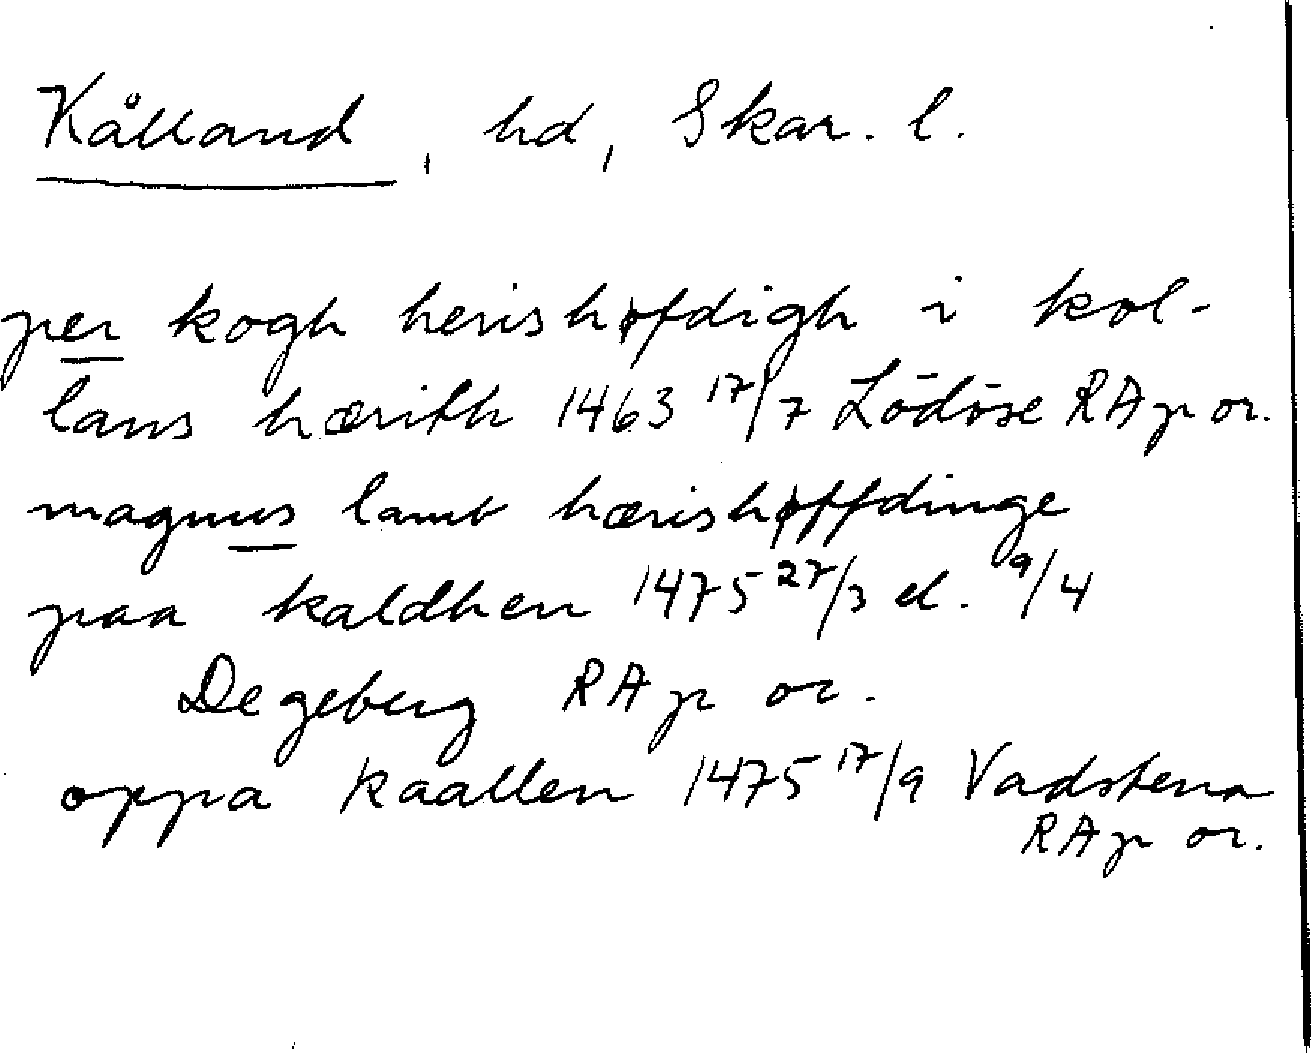 Kålland, hd, Skar. l.
per kogh herishøfdigh i kol-
lans hærith 1463 17/7 Lödöse RAp or.
magnus lamb hærishøffdinge
paa kaldhen 1475 27/3 el. 9/4
Degeberg RAp or.
oppa kaallen 1475 17/9 Vadstena
RAp or.